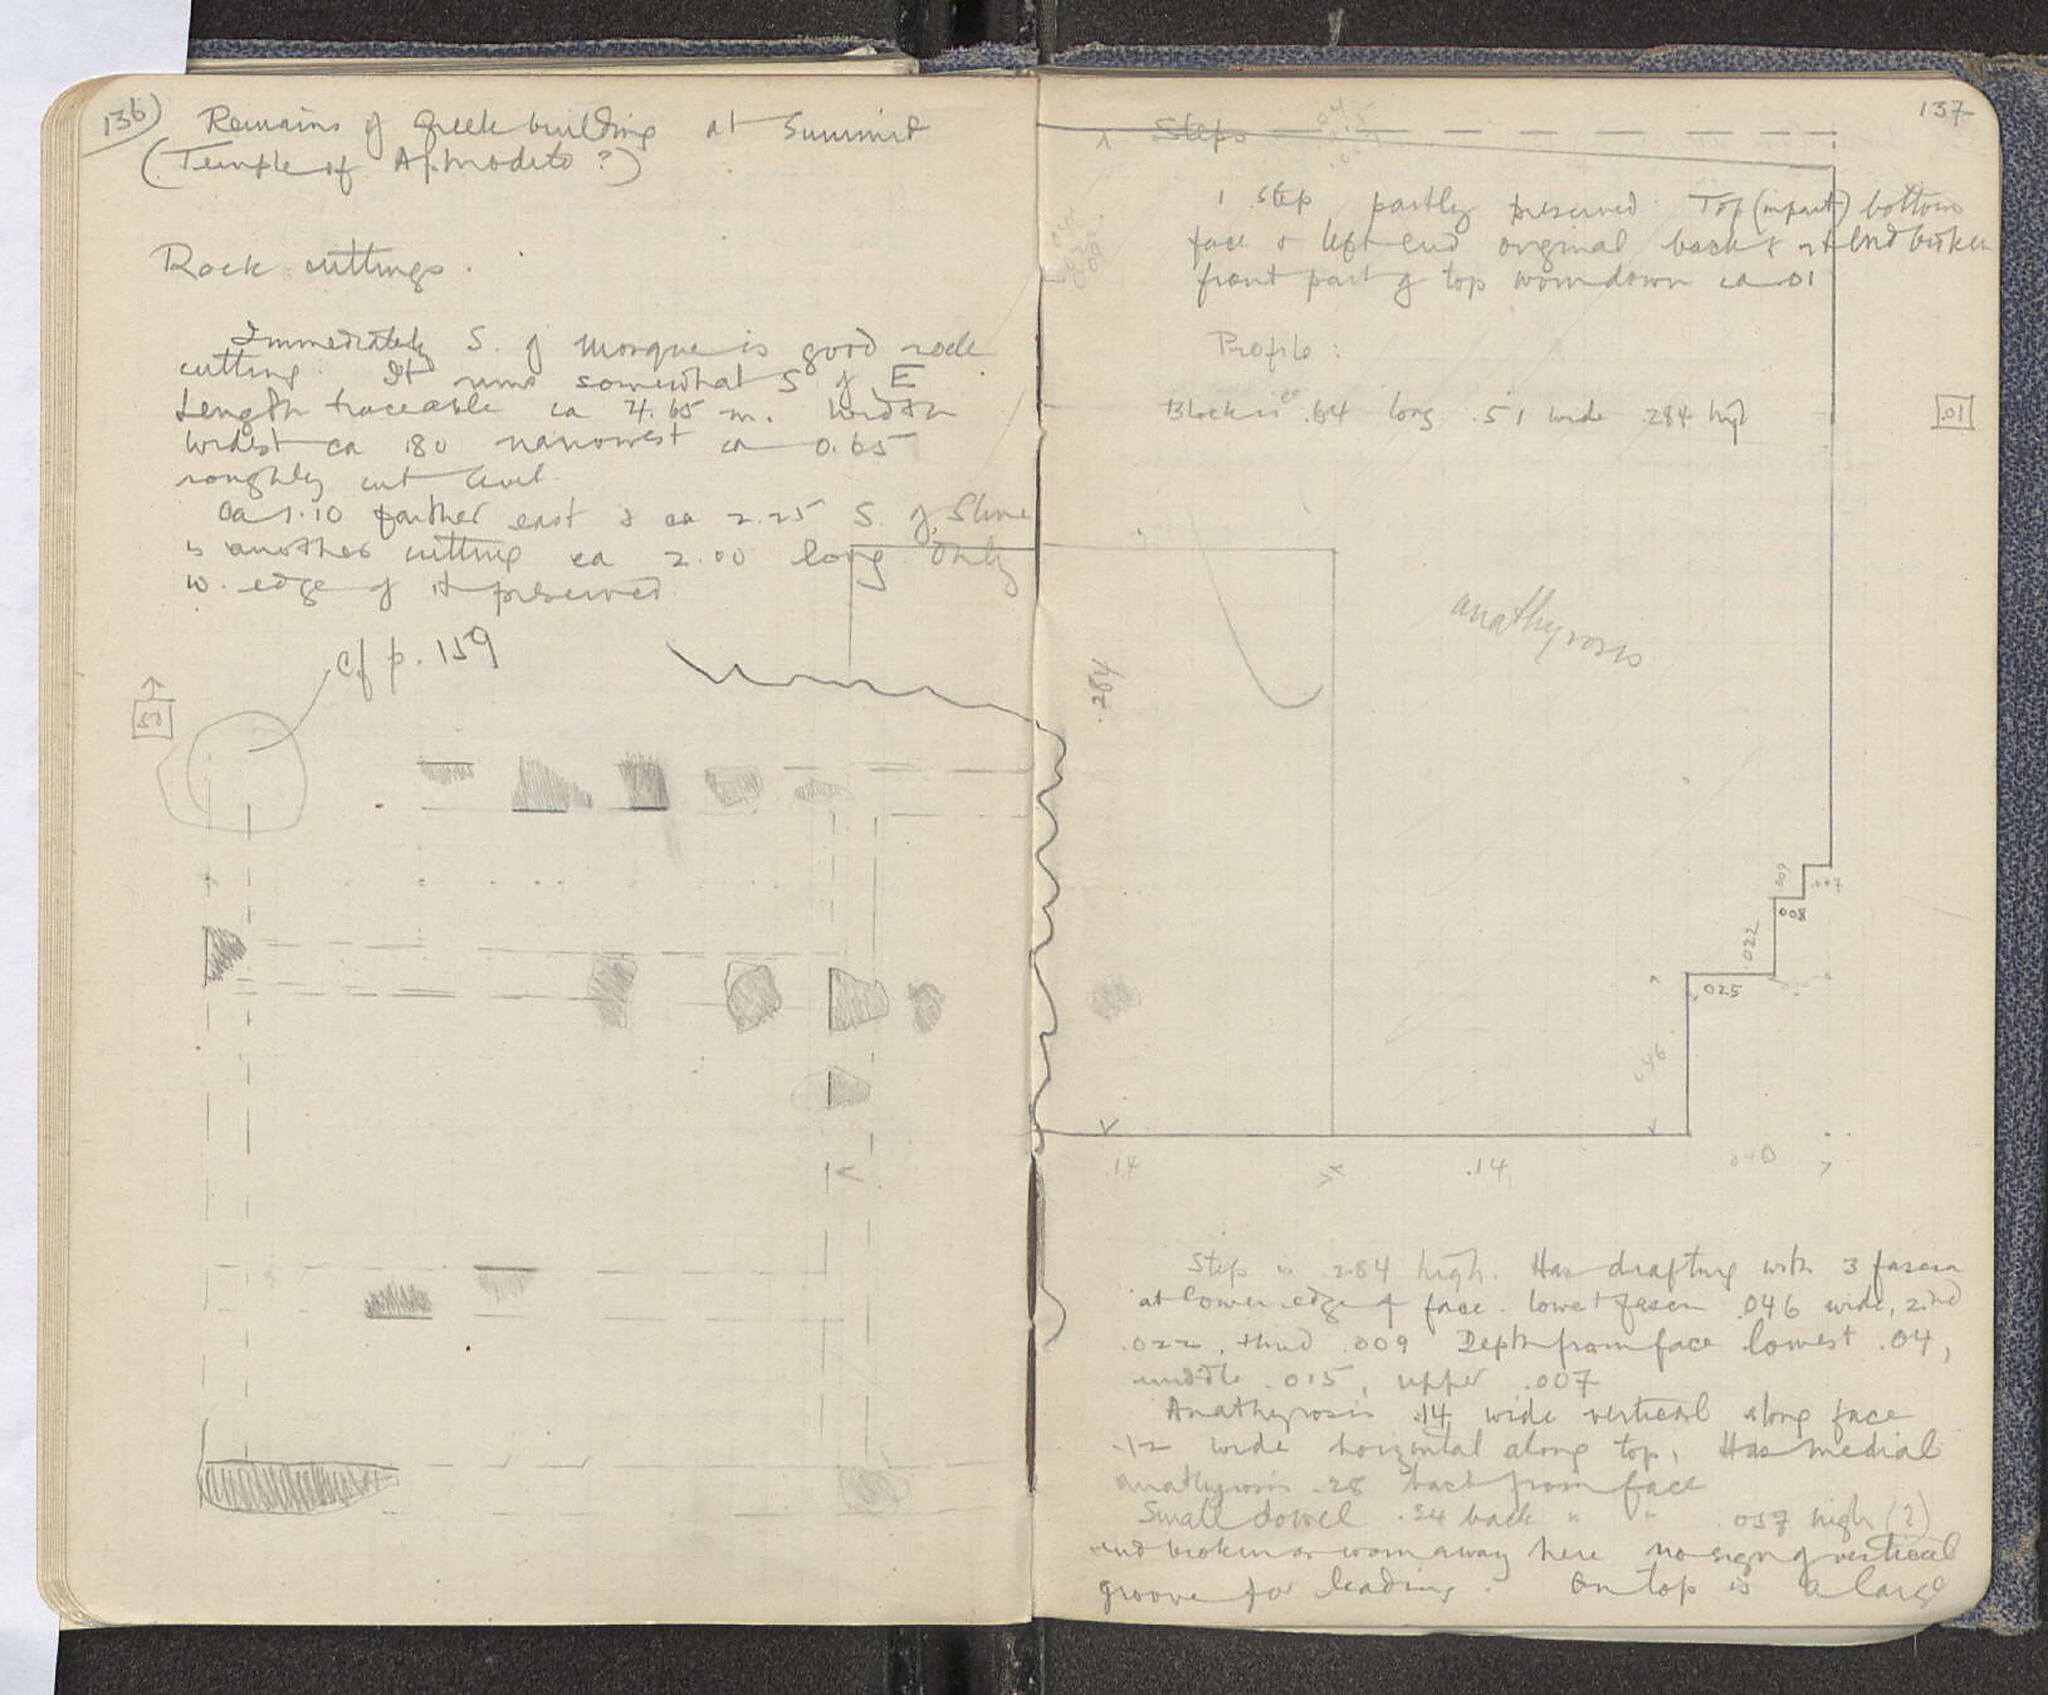 136)
Remains of Greek building at Summit
(Temple of Aphrodite ?)
Rock cuttings.
Immediately S. of Mosque is good rock
cutting. It runs somewhat S of E
Length traceable ca 4.65 m. width
widest ca 180 narrowest ca 0.65
roughly cut level.
Ca 1.10 farther east & ca 2.25 S. of
is another cutting ca 2.00 long only
w. edge of it preserved.
cf p. 159
137
Steps
1 step partly preserved. Top (in part) bottom
face & left end original back & rt end broken
front part of top worn down ca .01
Profile:
Block is .64 long .51 wide .284 high
.01
anathyrosis
.284
.009
.007
.008
.022
.025
.046
.14
.14
Step is .284 high. Has drafting with 3 fascia
at lower edge of face. lowest fascia .046 wide, 2nd
.022, third .009 Depth from face lowest .04,
middle .015, upper .007
Anathyrosis .14 wide vertical along face
.12 wide horizontal along top. Has medial
anathyrosis .28 back from face
Small dowel .34 back " " .037 high (?)
end broken or worn away here no sign of vertical
groove for leading. On top is a large